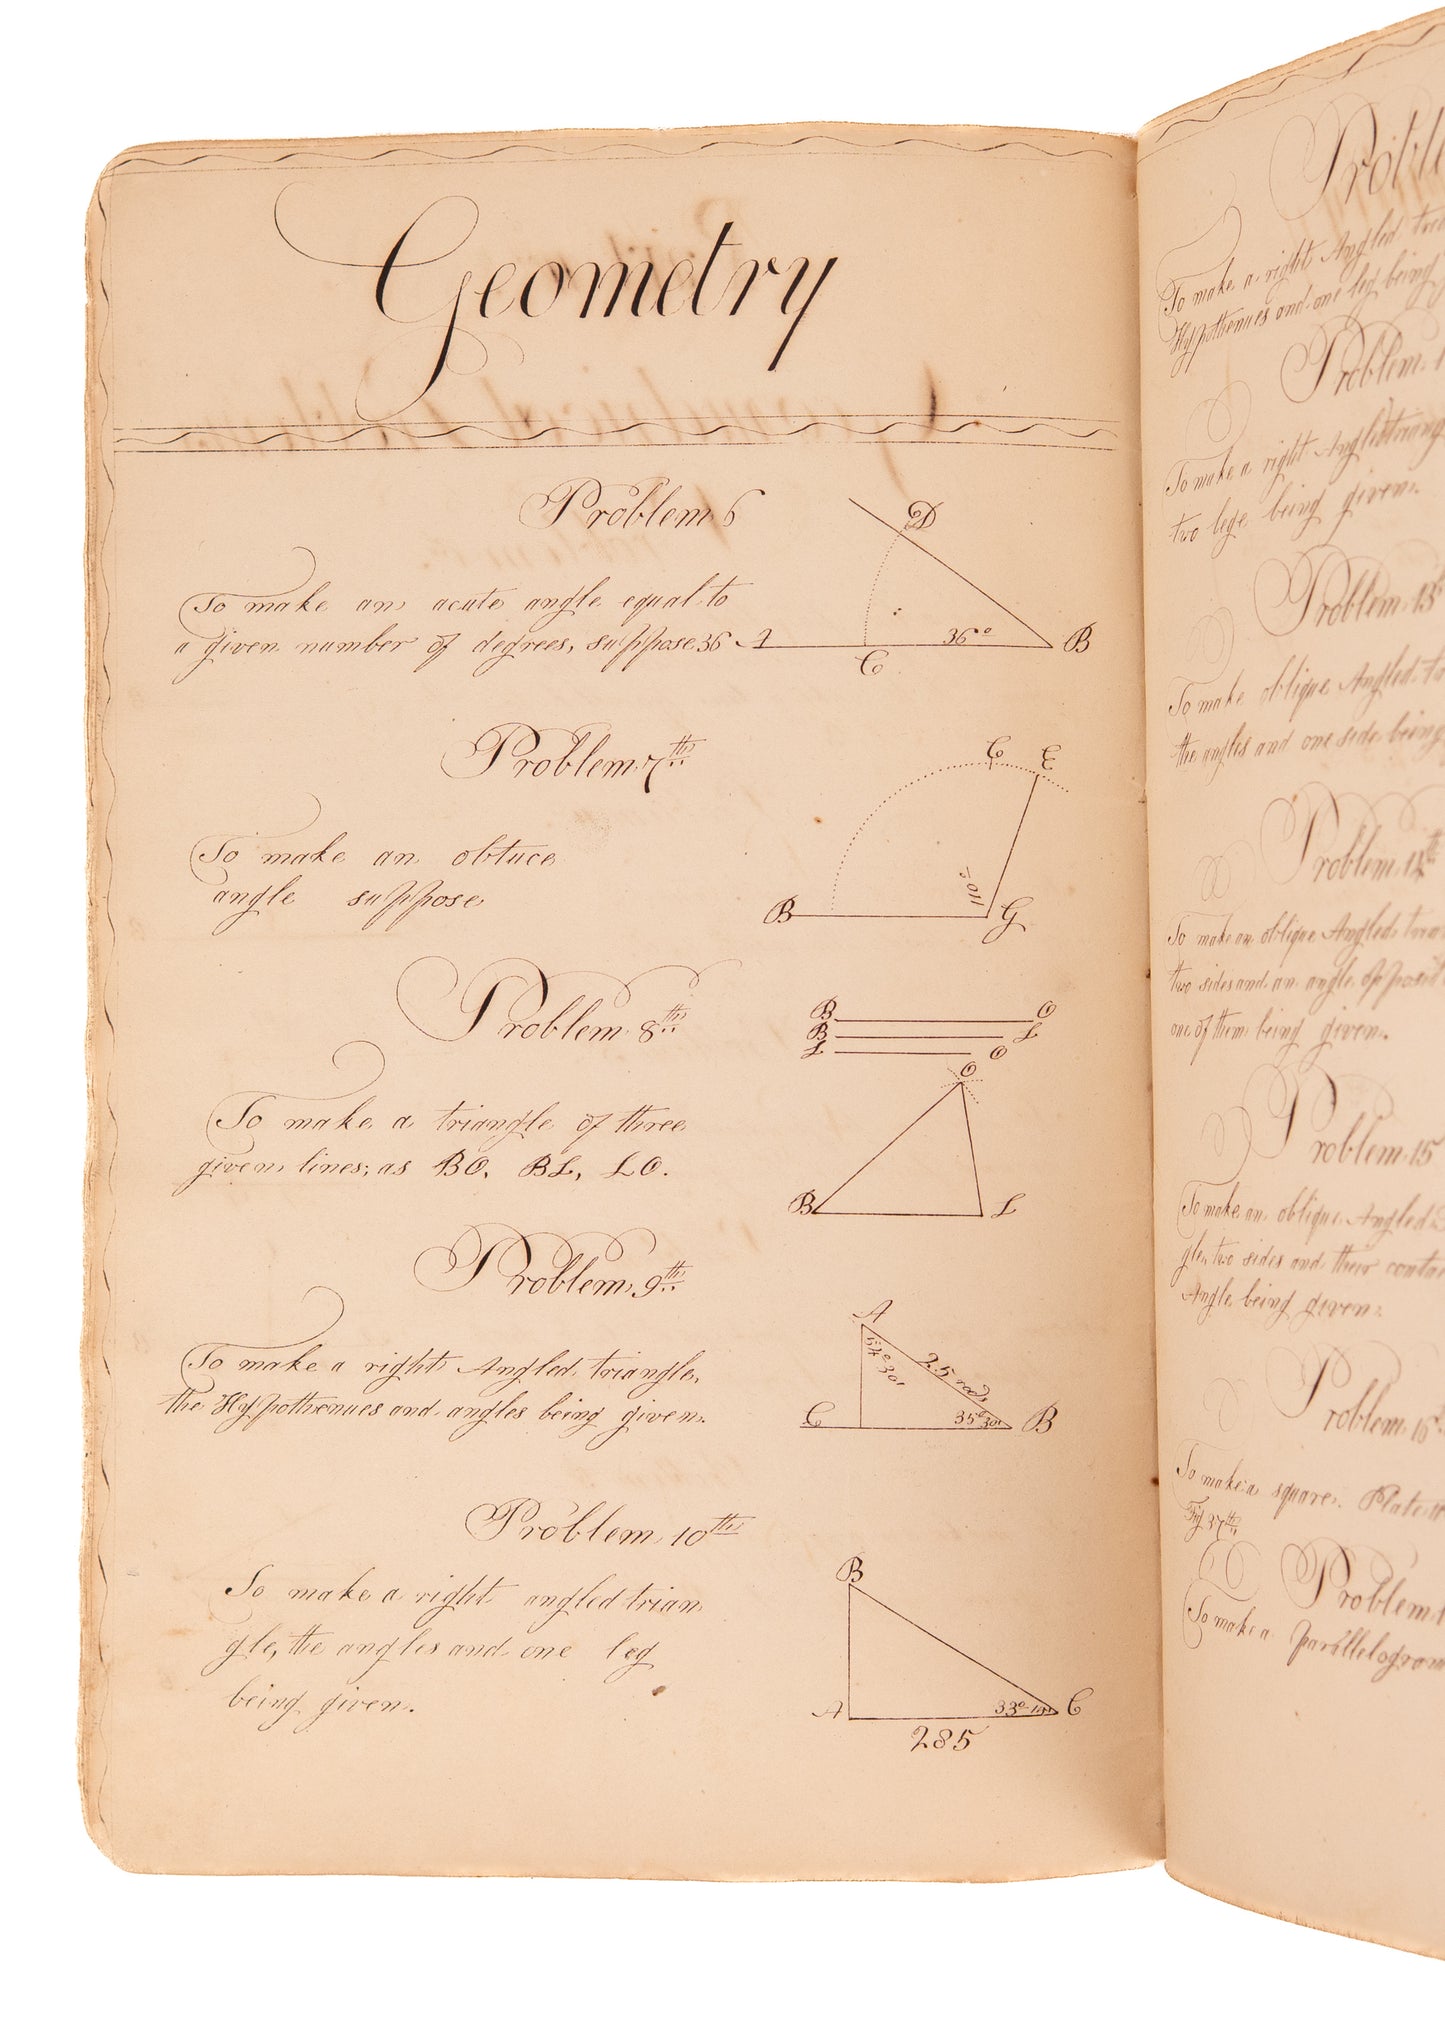 Geometry
Problem 6
To make an acute angle equal to
a given number of degrees, suppose 36
D
A
C
36°
B
Problem 7th
To make an obtuce
angle suppose
C E
110°
B
G
Problem 8th
To make a triangle of three
given lines; as BO, BL, LO.
B O
B L
L O
O
B
L
Problem 9th
To make a right Angled triangle,
the Hypothenues and angles being given.
A
54° 30'
25 rods
C
35° 30'
B
Problem 10th
To make a right angled trian
gle, the angles and one leg
being given.
B
A
33°
C
285
To make a right Angled
Hypothenues and one leg being
Problem
To make a right Angled triang
two legs being given.
Problem 13
To make oblique Angled
the angles and one side being
Problem 14th
To make an oblique Angled
two sides and an angle opposit
one of them being given.
Problem 15
To make an oblique Angled
gle, two sides and their contai
Angle being given.
Problem 16
To make a square. Plate
Fig 37th
Problem
To make a parallelogram